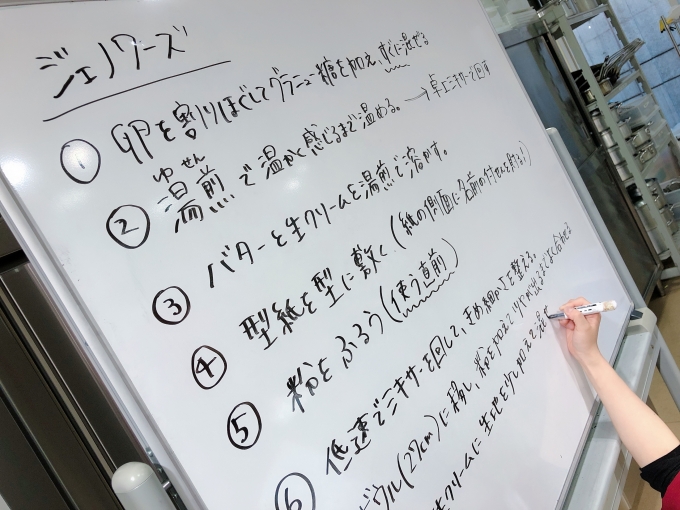 ジェノワーズ
① 卵を割りほぐしてグラニュー糖を加え、すぐに混ぜる
ゆせん
湯煎で温かく感じるまで温める。→卓上ミキサーで回す
② バターと生クリームを湯煎で溶かす。
③ 型紙を型に敷く(紙の側面に名前の付せんを貼る!)
④ 粉をふるう(使う直前)
⑤ 低速でミキサーを回して、きめ細かさを整える。
⑥ ボウル(27cm)に移し、粉を加えてツヤが出るまで混ぜ合わせる
生クリームに生地を少し加えて混